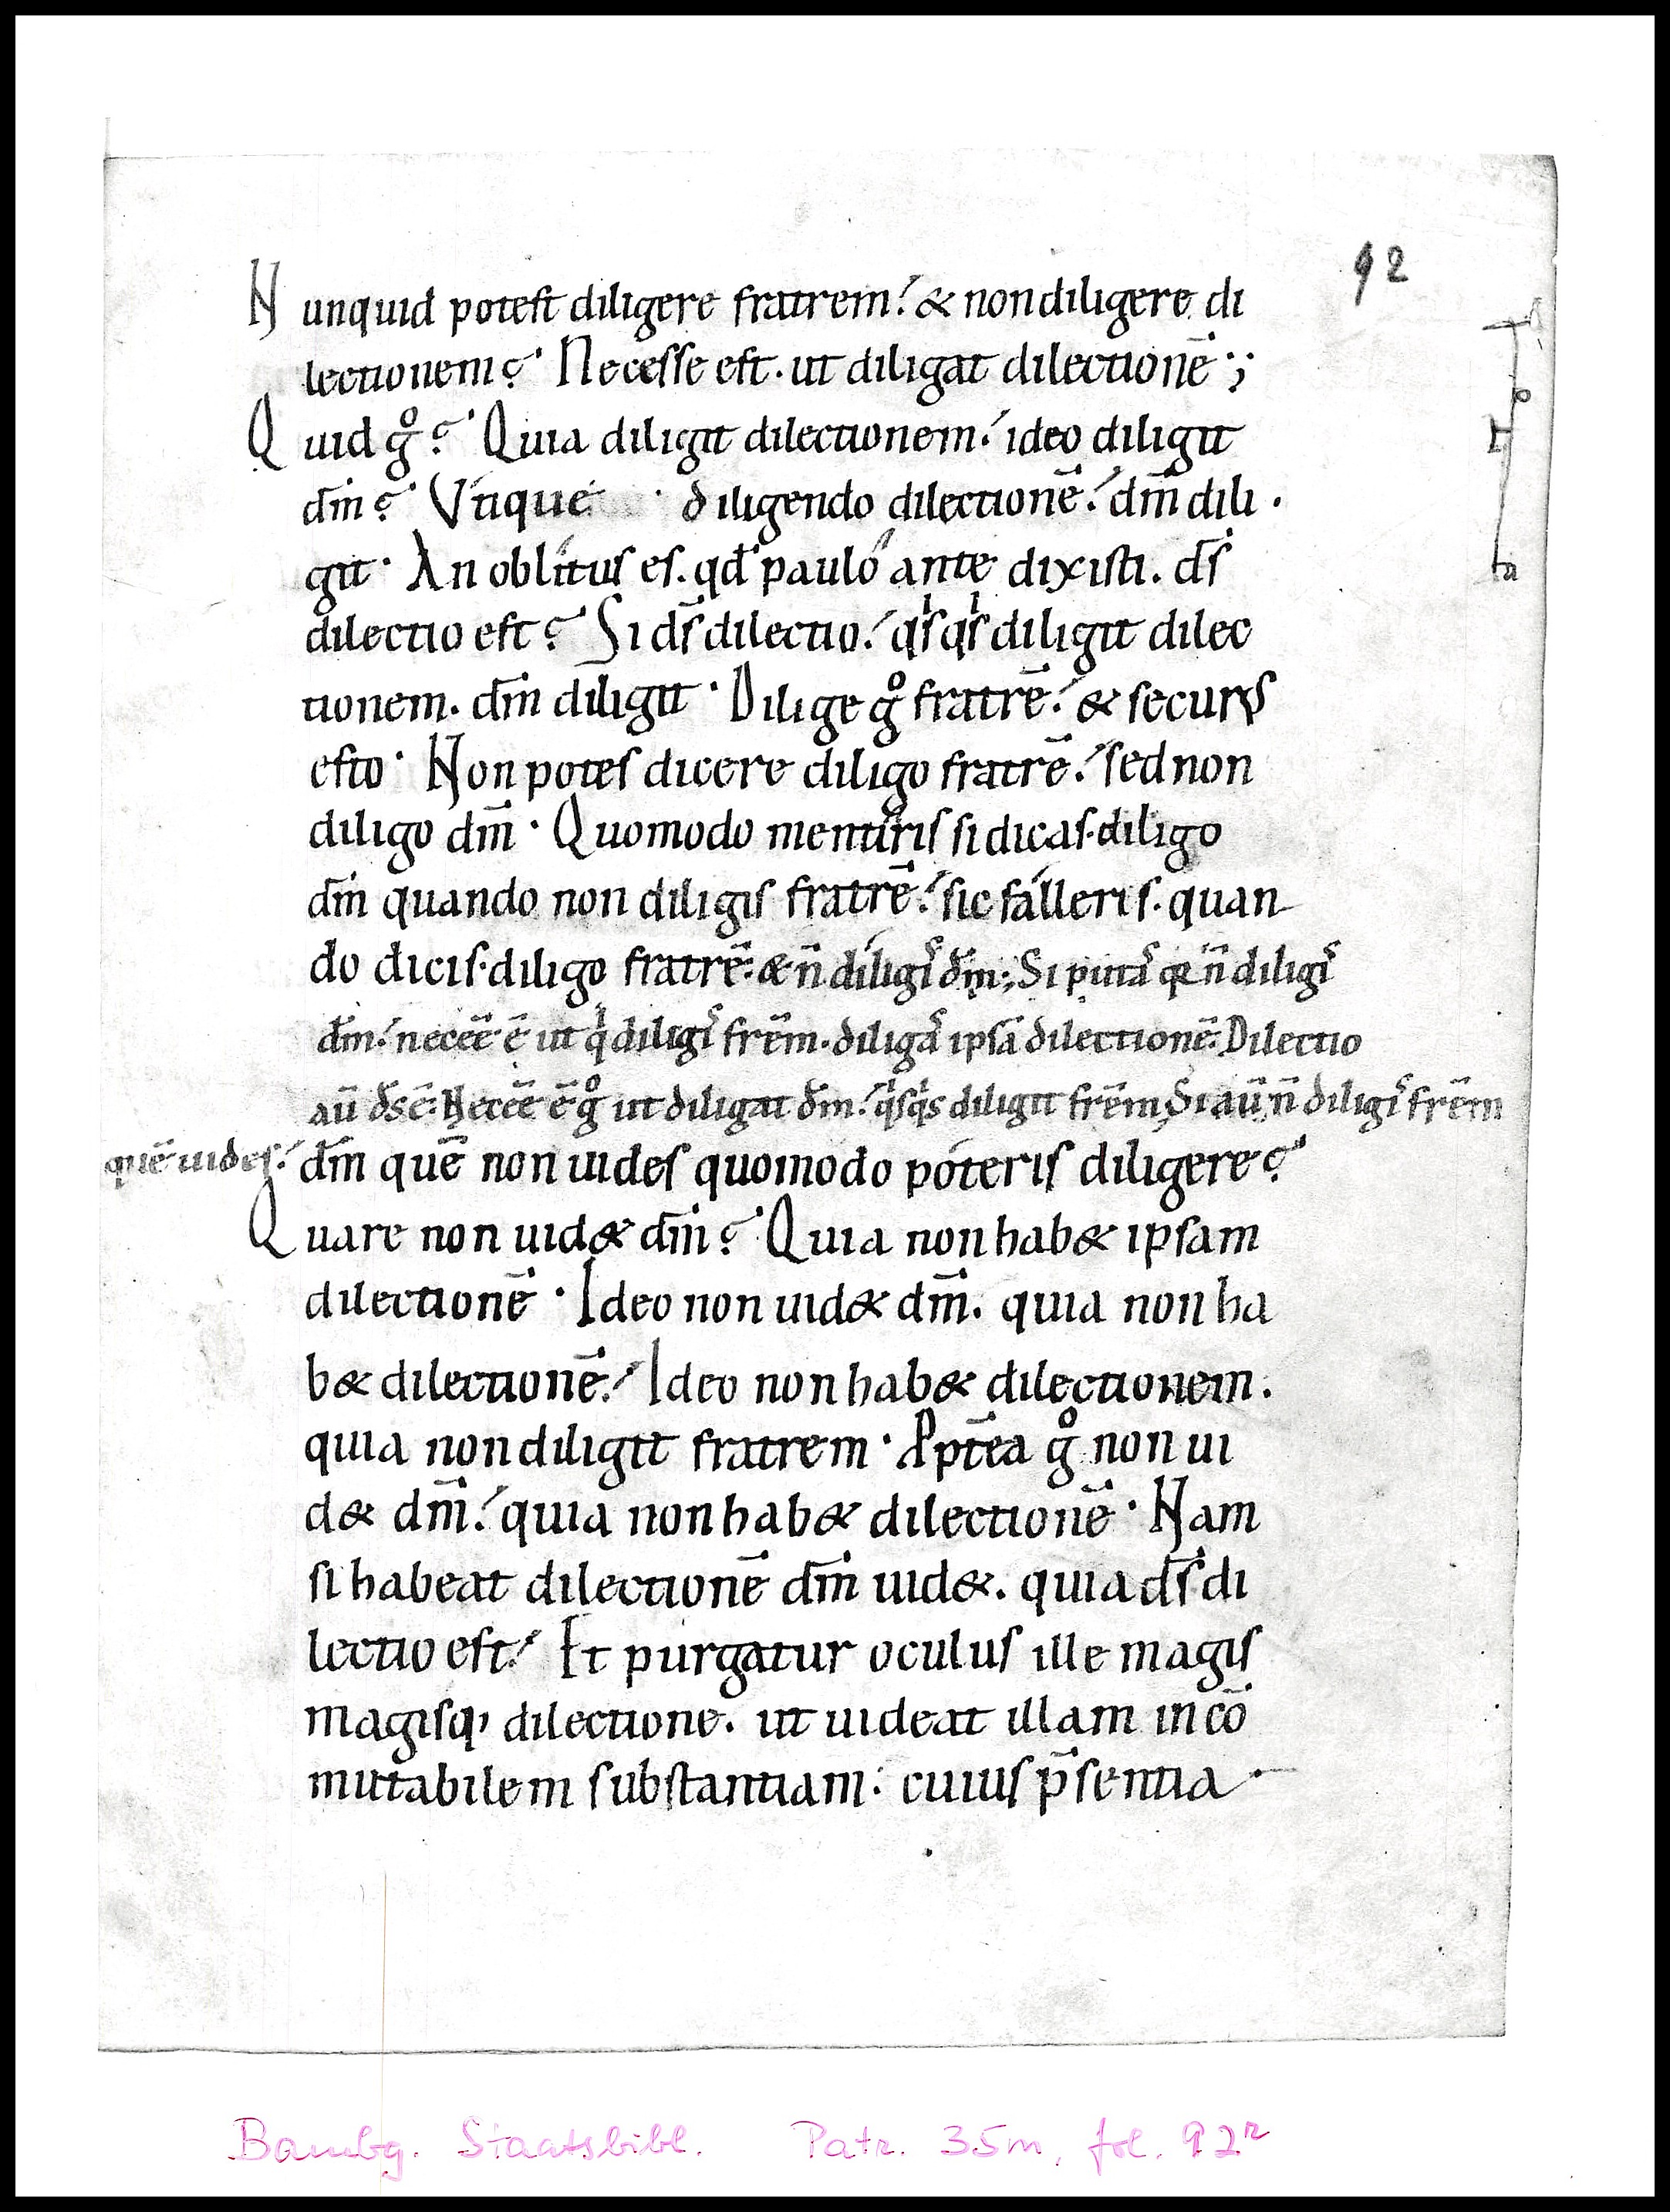 92
Nunquid potest diligere fratrem? & non diligere di
lectionem? Necesse est. ut diligat dilectionē;
Quid g̊? Quia diligit dilectionem? ideo diligit
dm̄? Vtique · diligendo dilectionē? dm̄ dili.
git· An oblitus es. qd̄ paulo ante dixisti. ds̄
dilectio est? Si ds̄ dilectio? qͥsqͥs diligit dilec
tionem. dm̄ diligit· Dilige g̊ fratrē? & securus
esto· Non potes dicere diligo fratrē? sed non
diligo dm̄· Quomodo mentiris si dicas· diligo
dm̄ quando non diligis fratrē? sic falleris. quan-
do dicis· diligo fratrē: & n̄ diligͦ dm̄; Si putas qd̄ n̄ diligi
dm̄? necēē ē ut qͥ diligi frēm. diligā ipsā dilectionē: Dilectio
aū ds̄ ē: Necēē ē g̊ ut diligat dm̄? qͥsqͥs diligit frēm; Si aū n̄ diligi frēm
quē uides? dm̄ quē non uides quomodo poteris diligere?
Quare non uid& dm̄? Quia non hab& ipsam
dilectionē· Ideo non uid& dm̄. quia non ha
b& dilectionē? Ideo non hab& dilectionem.
quia non diligit fratrem· Apṫea g̊ non ui
d& dm̄? quia non hab& dilectionē· Nam
si habeat dilectionē dm̄ uid&. quia ds̄ di
lectio est? Et purgatur oculus ille magis
magisq; dilectione. ut uideat illam in cō
mutabilem substantiam: cuius p̄sentia·
Bambg. Staatsbibl. Patr. 35m, fol. 92r